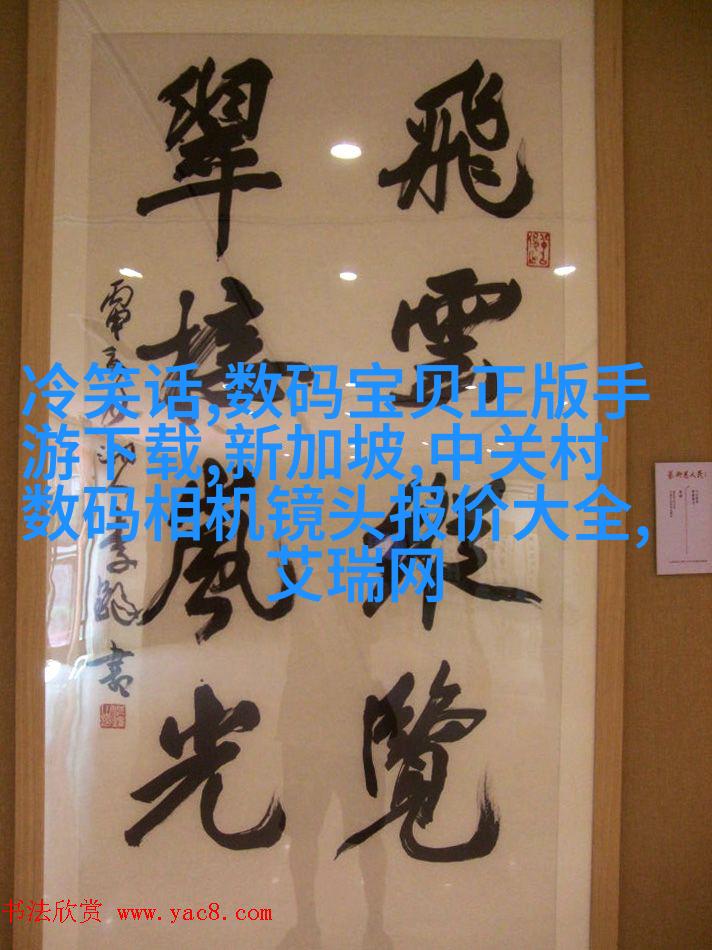 飛雲縱覽
翠接嵐光
李鐸書
冷笑话,数码宝贝正版手
游下载,新加坡,中关村
数码相机镜头报价大全,
艾瑞网
书法欣赏 www.yac8.com